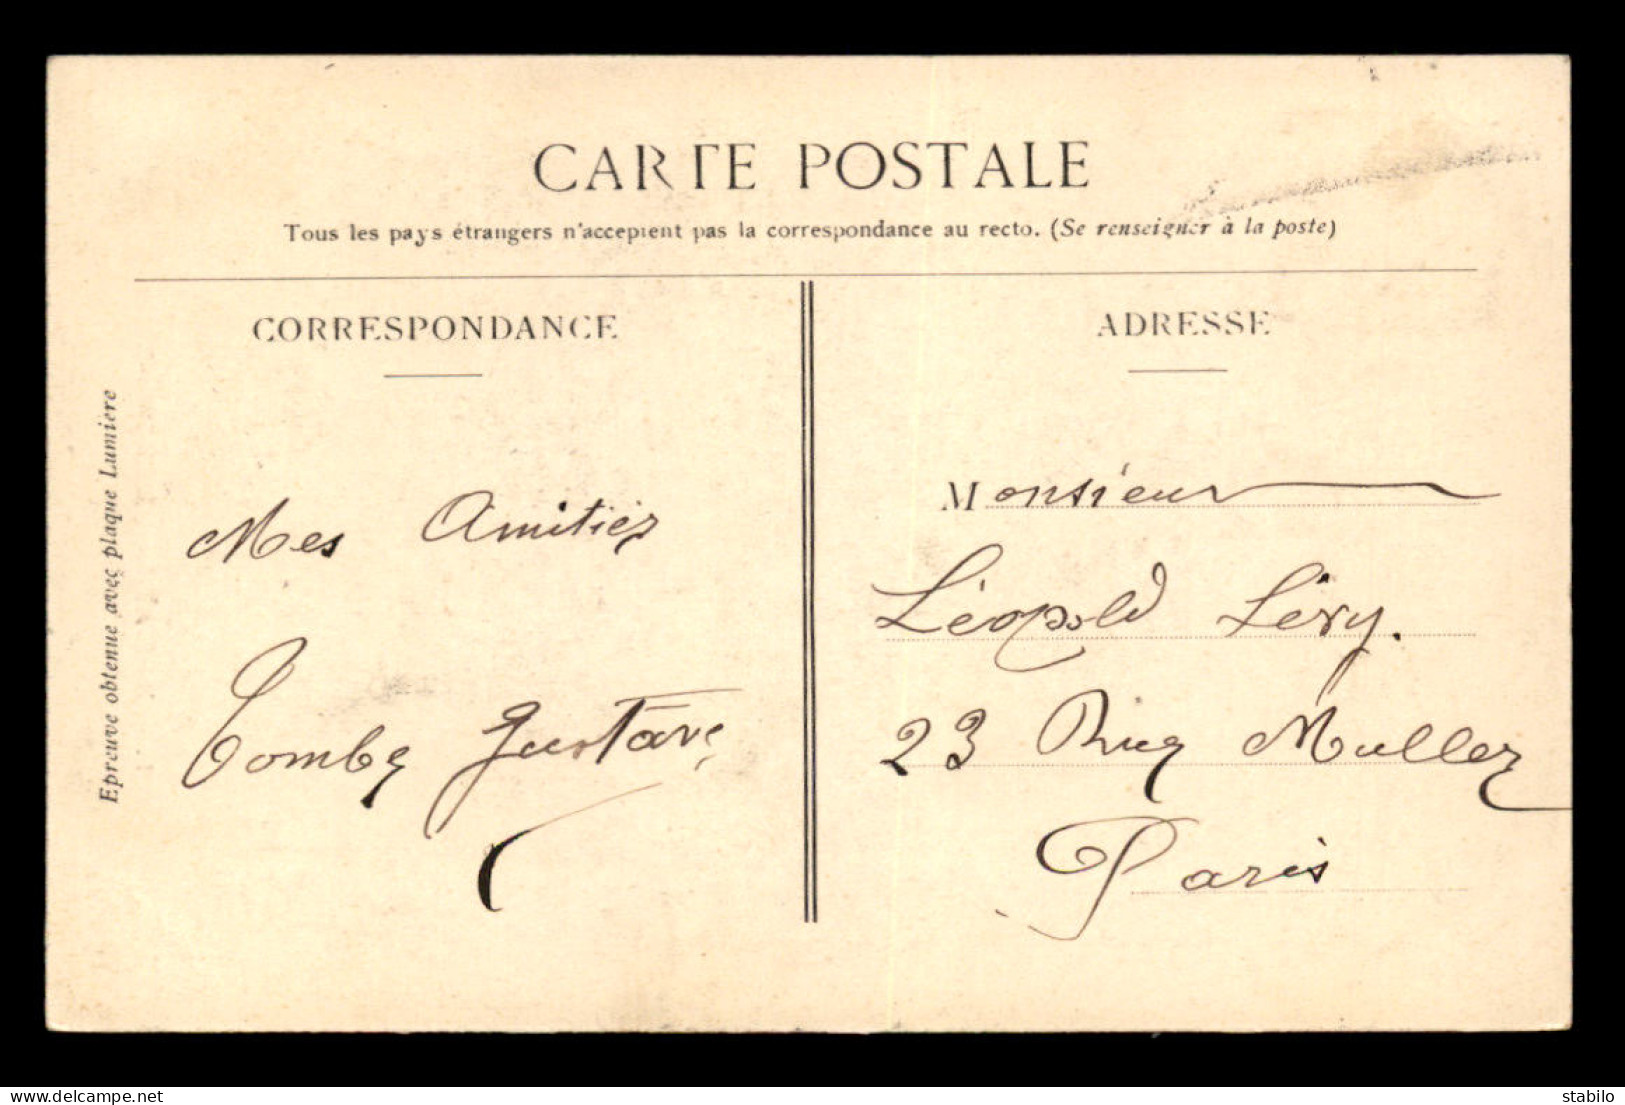 CARTE POSTALE
Tous les pays étrangers n'acceptent pas la correspondance au recto. (Se renseigner à la poste)
CORRESPONDANCE
Mes Amitiés
Tombe Gustave
Epreuve obtenue avec plaque Lumiere
ADRESSE
Monsieur
Léopold Lévy.
23 Rue Muller
Paris
delcampe.net
stabilo